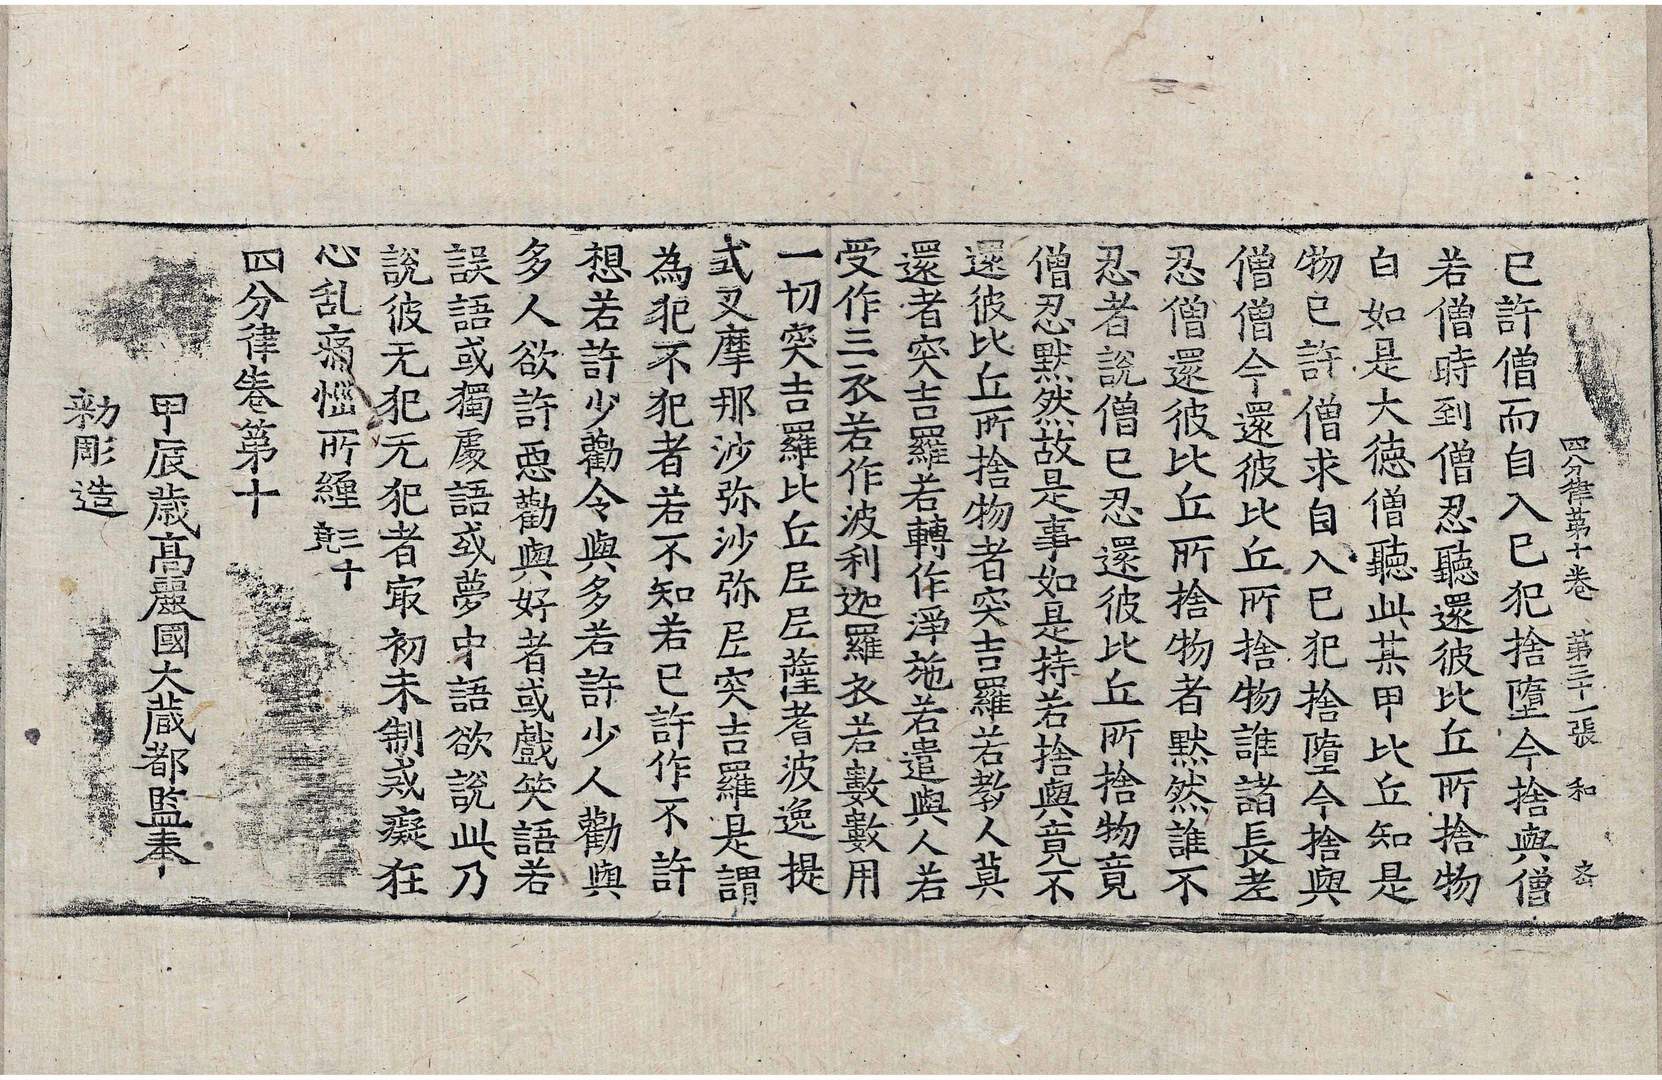 四分律第十卷 第三十一張 和 忠
已許僧而自入已犯捨墮今捨與僧
若僧時到僧忍聽還彼比丘所捨物
白如是大德僧聽此某甲比丘知是
物已許僧求自入已犯捨墮今捨與
僧僧今還彼比丘所捨物誰諸長老
忍僧還彼比丘所捨物者默然誰不
忍者說僧已忍還彼比丘所捨物竟
僧忍默然故是事如是持若捨與竟不
還彼比丘所捨物者突吉羅若教人莫
還者突吉羅若轉作淨施若遣與人若
受作三衣若作波利迦羅衣若數數用
一切突吉羅比丘尼尼薩耆波逸提
式叉摩那沙弥沙弥尼突吉羅是謂
為犯不犯者若不知若已許作不許
想若許少勸令與多若許少人勸與
多人欲許惡勸與好者或戲笑語若
誤語或獨處語或夢中語欲說此乃
說彼无犯无犯者寂初未制戒癡狂
心乱痛惱所纏 竟三十
四分律卷第十
甲辰歲高麗國大藏都監奉
勑彫造